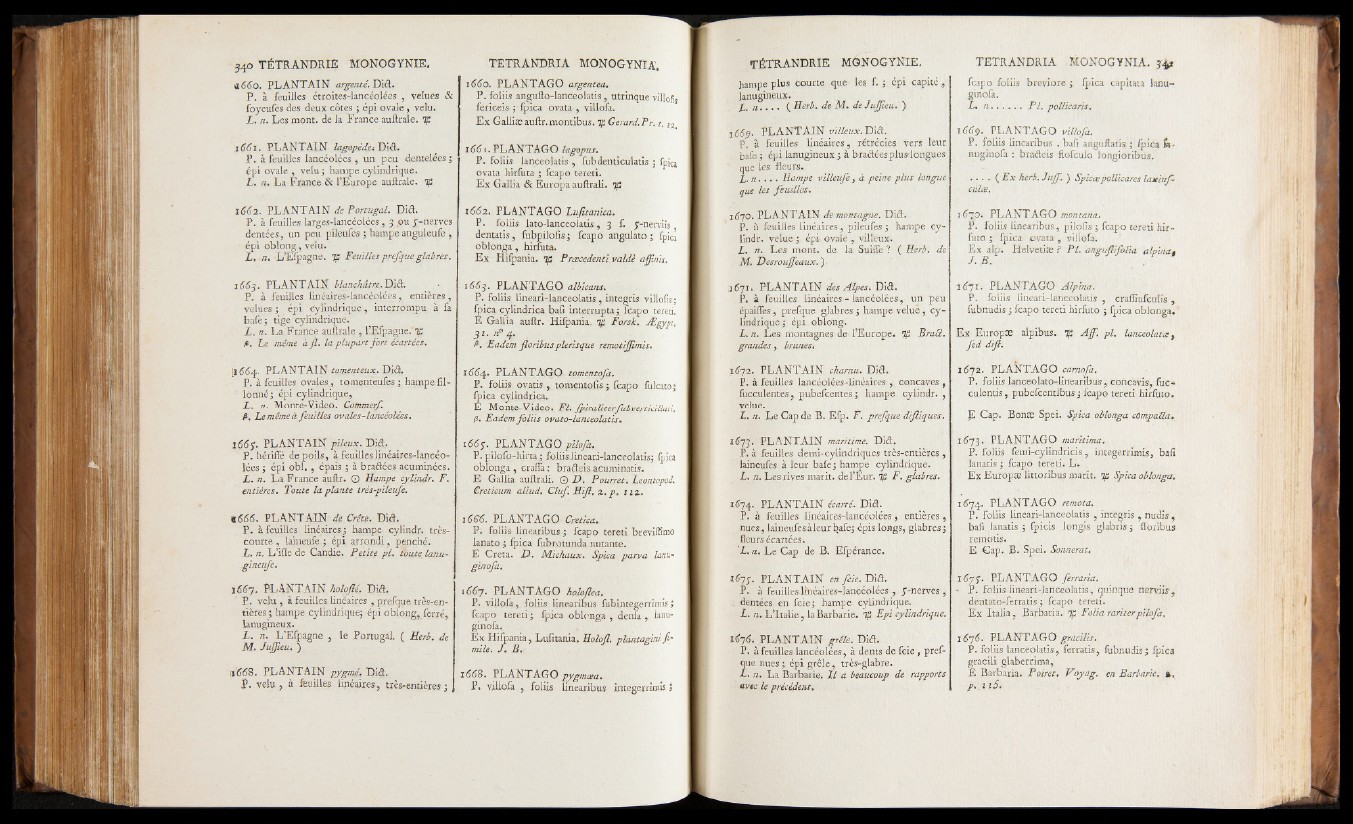 340 TÉTRANDRIE MONOGYNIE.
1660. PLANTAIN argenté. Dict.
P. à feuilles étroites-lancéolées , velues &
soyeuses des deux côtes ; épi ovale , velu.
L. n. Les mont. de la France australe. ♃
1661. PLANTAIN lagopède. Dict.
P. à feuilles lancéolées , un peu dentelées ;
épi ovale , velu ; hampe cylindrique.
L. n. La France & l'Europe australe. ♃
1662. PLANTAIN de Portugal. Dict.
P. à feuilles larges-lancéolées , 3 ou 5-nerves
dentées, un peu pileuses ; hampe anguleuse ,
épi oblong, velu.
L. n. L'Espagne. ♃ Feuilles presque glabres.
1663. PLANTAIN blanchâtre. Dict.
P. à feuilles linéaires-lancéolées, entières,
velues ; épi cylindrique, interrompu à sa
base ; tige cylindrique.
L. n. La France australe , l'Espagne. ♃
β. Le même à fl. la plupart fort écartées.
1664. PLANTAIN tomenteux. Dict.
P. à feuilles ovales, tomenteuses ; hampe sil-
lonné ; épi cylindrique,
L. n. Monte-Video. Commers.
β. Le même à feuilles ovales-lancéolées.
1665. PLANTAIN pileux. Dict.
P. hérissé de poils, à feuilles linéaires-lancéo-
lées ; épi obl. , épais ; à bractées acuminées.
L. n. La France austr. ☉ Hampe cylindr. F.
entières. Toute la plante très-pileuse.
1666. PLANTAIN de Crête. Dict.
P. à feuilles linéaires ; hampe cylindr. très-
courte , laineuse ; épi arrondi , penché.
L. n. L'isle de Candie. Petite pl. toute lanu-
gineuse.
1667. PLANTAIN holosté. Dict.
P. velu , à feuilles linéaires , presque très-en-
tières ; hampe cylindrique; épi oblong, serré,
lanugineux.
L. n. L'Espagne , le Portugal. ( Herb. de
M. Jussieu. )
1668. PLANTAIN pygmé. Dict.
P. velu , à feuilles linéaires, très-entières ;
TETRANDRIA MONOGYNIA.
1660. PLANTAGO argentea.
P. foliis angusto-lanceolatis, utrinque villosis
sericeis ; spica ovata , villosa.
Ex Galliæ austr. montibus. ♃ Gerard. Pr. t. 12.
1661. PLANTAGO lagopus.
P. foliis lanceolatis , subdenticulatis ; spica
ovata hirsuta ; scapo tereti.
Ex Gallia & Europa australi. ♃
1662. PLANTAGO Lusitanica.
P. foliis lato-lanceolatis, 3 s. 5-nerviis ,
dentatis, subpilosis ; scapo angulato ; spica
oblonga , hirsuta.
Ex Hispania. ♃ Præcedenti valdè affinis.
1663. PLANTAGO albicans.
P. foliis lineari-lanceolatis, integris villosis;
spica cylindrica basi interrupta ; scapo tereti.
E Gallia austr. Hispania. ♃ Forsk. Ægypt.
31. n° 4.
β. Eadem floribus plerisque remotissimis.
1664. PLANTAGO tomentosa.
P. foliis ovatis , tomentosis ; scapo sulcato ;
spica cylindrica.
E Monte-Video. Fl.
β. Eadem foliis ovato-lanceolatis.
1665. PLANTAGO pilosa.
P. piloso-hirta ; foliis lineari-lanceolatis; spica
oblonga , crassa : bracteis acuminatis.
E Gallia australi. ☉ D. Pourret. Leontopod.
Creticum aliud. Clus. Hist. 2. p. 112.
1666. PLANTAGO Cretica.
P. foliis linearibus ; scapo tereti brevissimo
lanato ; spica subrotunda nutante.
E Creta. D. Michaux. Spica parva lanu-
ginosa.
1667. PLANTAGO holostea.
P. villosa, foliis linearibus subintegerrimis ;
scapo tereti ; spica oblonga , densa , lanu-
ginosa.
Ex Hispania, Lusitania. Holost. plantagini si-
mile. J. B.
1668. PLANTAGO pygmæa.
P. villosa , foliis linearibus integerrimis ;
TÉTRANDRIE MONOGYNIE.
hampe plus courte que les f. ; épi capité ,
lanugineux.
L. n. . . . ( Herb. de M. de Jussieu. )
1669. PLANTAIN villeux. Dict.
P. à feuilles linéaires, rétrécies vers leur
base ; épi lanugineux ; à bractées plus longues
que les fleurs.
L. n. . . . Hampe villeuse, à peine plus longue
que les feuilles.
1670. PLANTAIN de montagne. Dict.
P. à feuilles linéaires, pileuses ; hampe cy-
lindr. velue ; épi ovale , villeux.
L. n. Les mont. de la Suisse ? ( Herb. de
M. Desrousseaux. )
1671. PLANTAIN des Alpes. Dict.
P. à feuilles linéaires-lancéolées, un peu
épaisses, presque glabres ; hampe velue , cy-
lindrique ; épi oblong.
L. n. Les montagnes de l'Europe. ♃ Bract.
grandes , brunes.
1672. PLANTAIN charnu. Dict.
P. à feuilles lancéolées-linéaires , concaves ,
succulentes, pubescentes ; hampe cylindr. ,
velue.
L. n. Le Cap de B. Esp. F. presque distiques.
1673. PLANTAIN maritime. Dict.
P. à feuilles demi-cylindriques très-entières ,
laineuses à leur base ; hampe cylindrique.
L. n. Les rives marit. de l'Eur. ♃ F. glabres.
1674. PLANTAIN écarté. Dict.
P. à feuilles linéaires-lancéolées , entières ,
nues, laineuses à leur base; épis longs, glabres;
fleurs écartées.
L. n. Le Cap de B. Espérance.
1675. PLANTAIN en scie. Dict.
P. à feuilles linéaires-lancéolées , 5-nerves ,
dentées en scie ; hampe cylindrique.
L. n. L'Italie, la Barbarie. ♃ Epi cylindrique.
1676. PLANTAIN grêle. Dict.
P. à feuilles lancéolées, à dents de scie , pres-
que nues ; épi grêle, très-glabre.
L. n. La Barbarie. Il a beaucoup de rapports
avec le précédent.
TETRANDRIA MONOGYNIA. 341
scapo foliis breviore ; spica capitata lanu-
ginosa.
L. n. . . . . . . Pl. pollicaris.
1669. PLANTAGO villosa.
P. foliis linearibus . basi angustatis ; spica la-
nuginosa : bracteis flosculo longioribus.
. . . . ( Ex herb. Juss. ) Spicæ pollicares laxius-
culæ.
1670. PLANTAGO montana.
P. foliis linearibus, pilosis ; scapo tereti hir-
suto ; spica ovata , villosa.
Ex alp. Helvetiæ ? Pl. angustifolia alpina,
J. B.
1671. PLANTAGO Alpina.
P. foliis lineari-lanceolatis , crassiusculis ,
subnudis ; scapo tereti hirsuto ; spica oblonga.
Ex Europæ alpibus. ♃ Aff. pl. lanceolatæ,
sed dist.
1672. PLANTAGO carnosa.
P. foliis lanceolato-linearibus, concavis, suc-
culentis, pubescentibus ; scapo tereti hirsuto.
E Cap. Bonæ Spei. Spica oblonga compacta.
1673. PLANTAGO maritima.
P. foliis semi-cylindricis, integerrimis, basi
lanatis ; scapo tereti. L.
Ex Europæ littoribus marit. ♃ Spica oblonga.
1674. PLANTAGO remota.
P. foliis lineari-lanceolatis , integris , nudis ,
basi lanatis ; spicis longis glabris ; floribus
remotis.
E Cap. B. Spei. Sonnerat.
1675. PLANTAGO serraria.
P. foliis lineari-lanceolatis, quinque nerviis ,
dentato-serratis ; scapo tereti.
Ex Italia, Barbaria. ♃ Folia rariter pilosa.
1676. PLANTAGO gracilis.
P. foliis lanceolatis, serratis, subnudis ; spica
gracili glaberrima,
E Barbaria. Poiret. Voyag. en Barbarie.
p. 116.